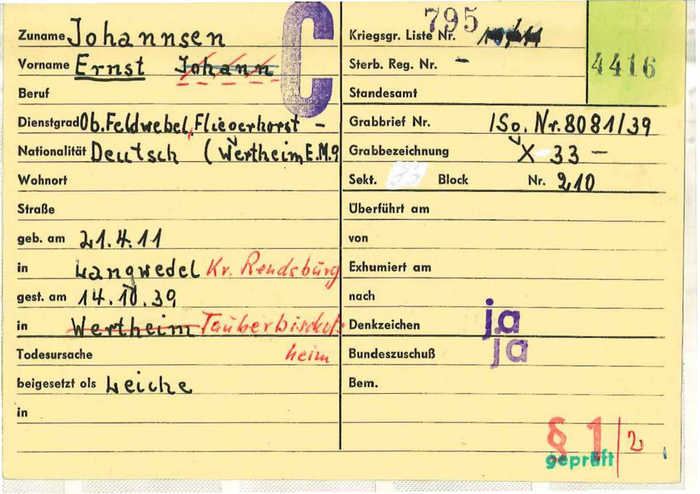 Zuname Johannsen
Vorname Ernst Johann
Beruf
Dienstgrad Ob. Feldwebel, Fliegerhorst -
Nationalität Deutsch (Wertheim E.M.?
Wohnort
Straße
geb. am 21.4.11
in Langwedel Kr. Rendsburg
gest. am 14.10.39
in Wertheim Tauberbischofs
Todesursache heim
beigesetzt als Leiche
in
C
795
Kriegsgr. Liste Nr.
Sterb. Reg. Nr. -
4416
Standesamt
Grabbrief Nr. ISo. Nr. 8081/39
Grabbezeichnung X 33 -
Sekt. 33 Block Nr. 210
Überführt am
von
Exhumiert am
nach
Denkzeichen ja
Bundeszuschuß ja
Bem.
§ 1/2
geprüft